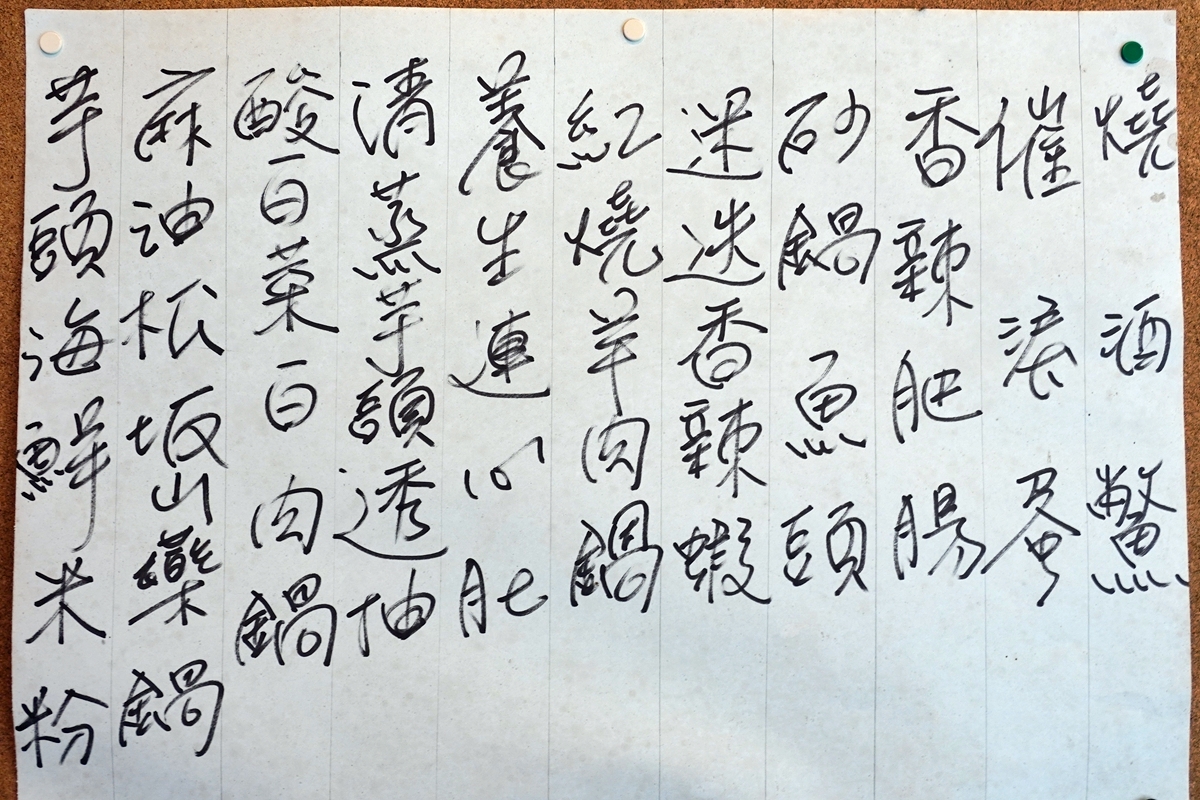 燒酒鱉
催淚蛋
香辣肥腸
砂鍋魚頭
迷迭香辣蝦
紅燒羊肉鍋
養生連心肚
清蒸芋頭透抽
酸白菜白肉鍋
麻油松坂山藥鍋
芋頭海鮮米粉